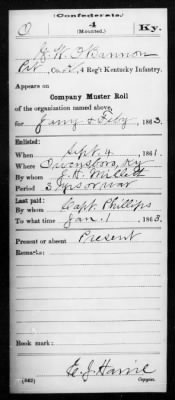 (Confederate.)
O 4 Ky.
(Mounted.)
O'Bannon
Pvt, Co. , 4 Reg't Kentucky Infantry.
Appears on
Company Muster Roll
of the organization named above,
for Jany & Feby, 1863.
Enlisted:
When Sept 4, 1861.
Where Owensboro, Ky
By whom Millett
Period 3 yrs or war
Last paid:
By whom Capt. Phillips
To what time Jan. 1, 1863.
Present or absent Present
Remarks:
Book mark:
E. J.
(642) Copyist.